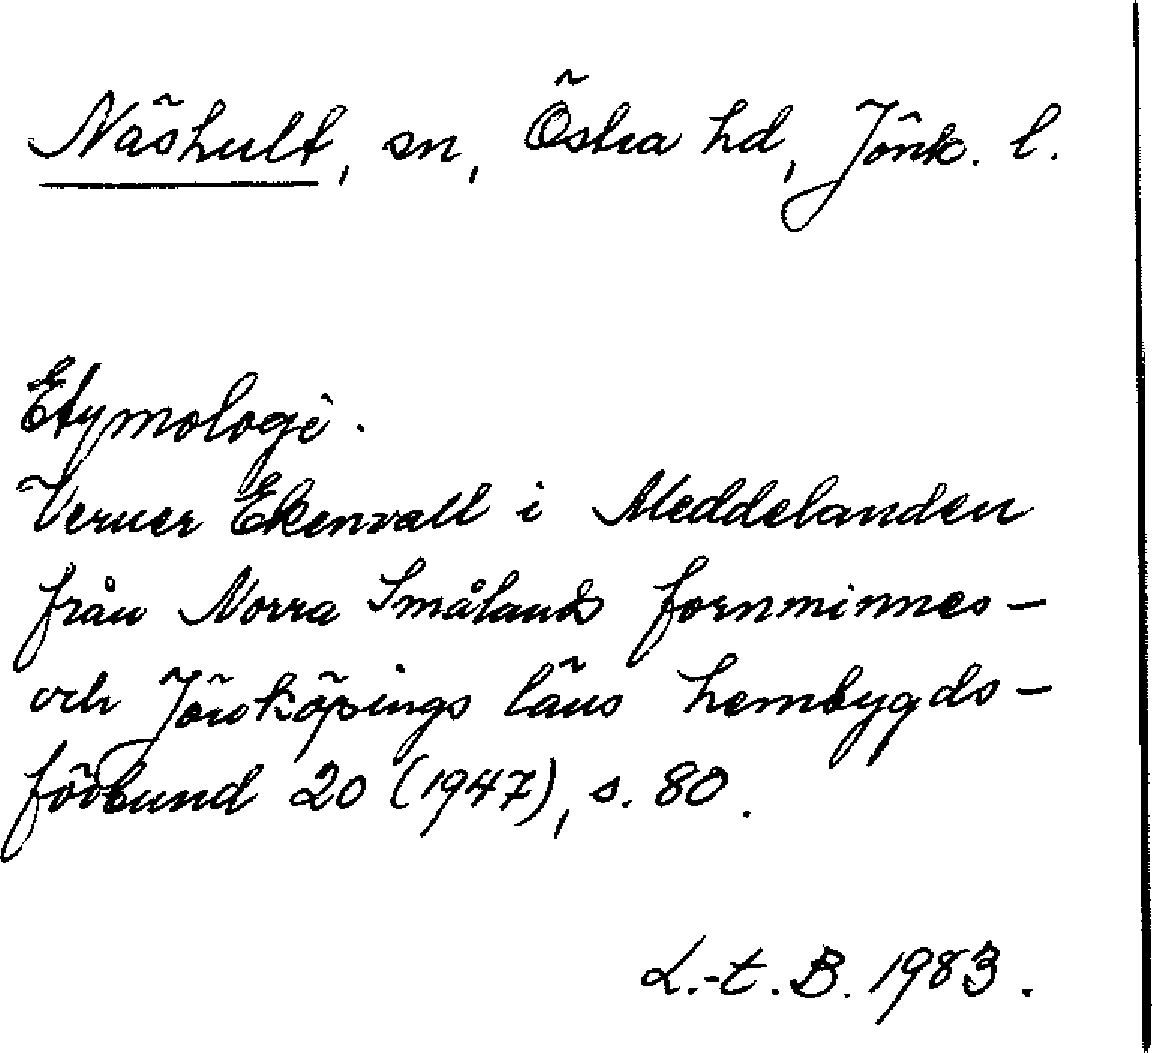 Näshult, sn, Östra hd, Jönk. l.
Etymologi.
Verner Ekenvall i Meddelanden
från Norra Smålands fornminnes-
och Jönköpings läns hembygds-
förbund 20 (1947), s. 80.
L.-t. B. 1983.